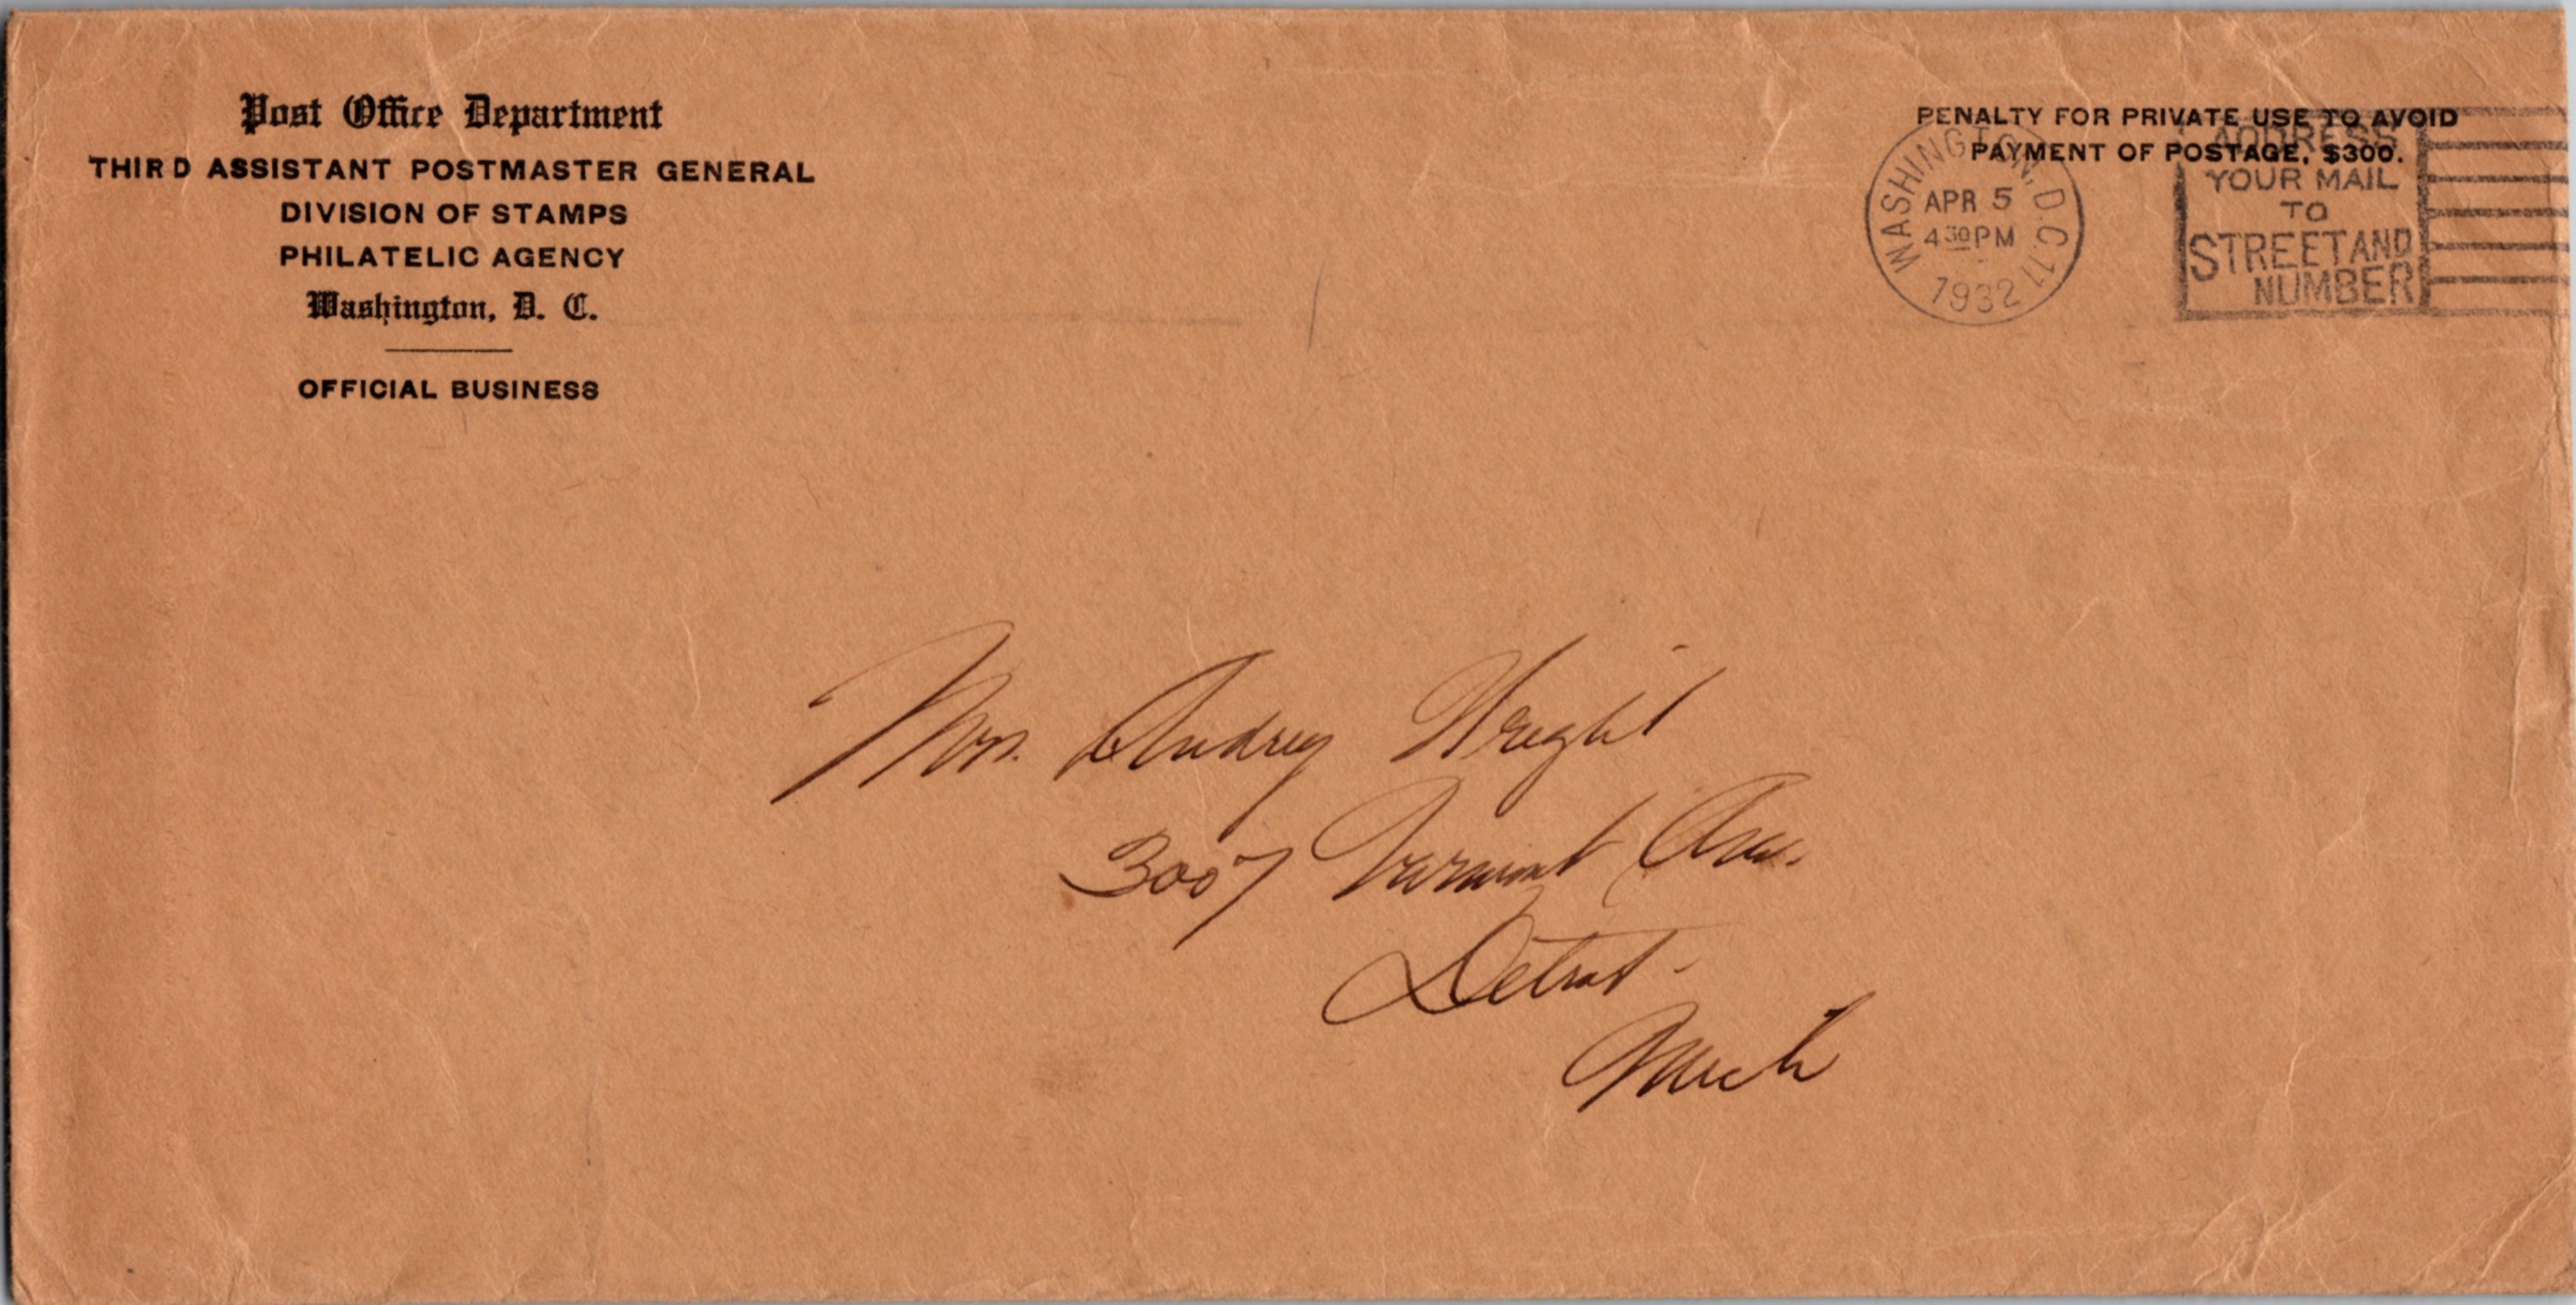 Post Office Department
THIRD ASSISTANT POSTMASTER GENERAL
DIVISION OF STAMPS
PHILATELIC AGENCY
Washington, D. C.
OFFICIAL BUSINESS
PENALTY FOR PRIVATE USE TO AVOID
PAYMENT OF POSTAGE, $300.
WASHINGTON, D.C. 11
APR 5
4 30 PM
1932
ADDRESS
YOUR MAIL
TO
STREET AND
NUMBER
Mrs. Audrey Wright
3007 Vermont Ave.
Detroit
Mich